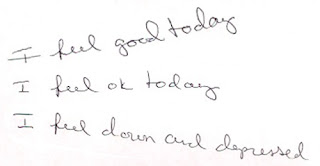 I feel good today
I feel ok today
I feel down and depressed